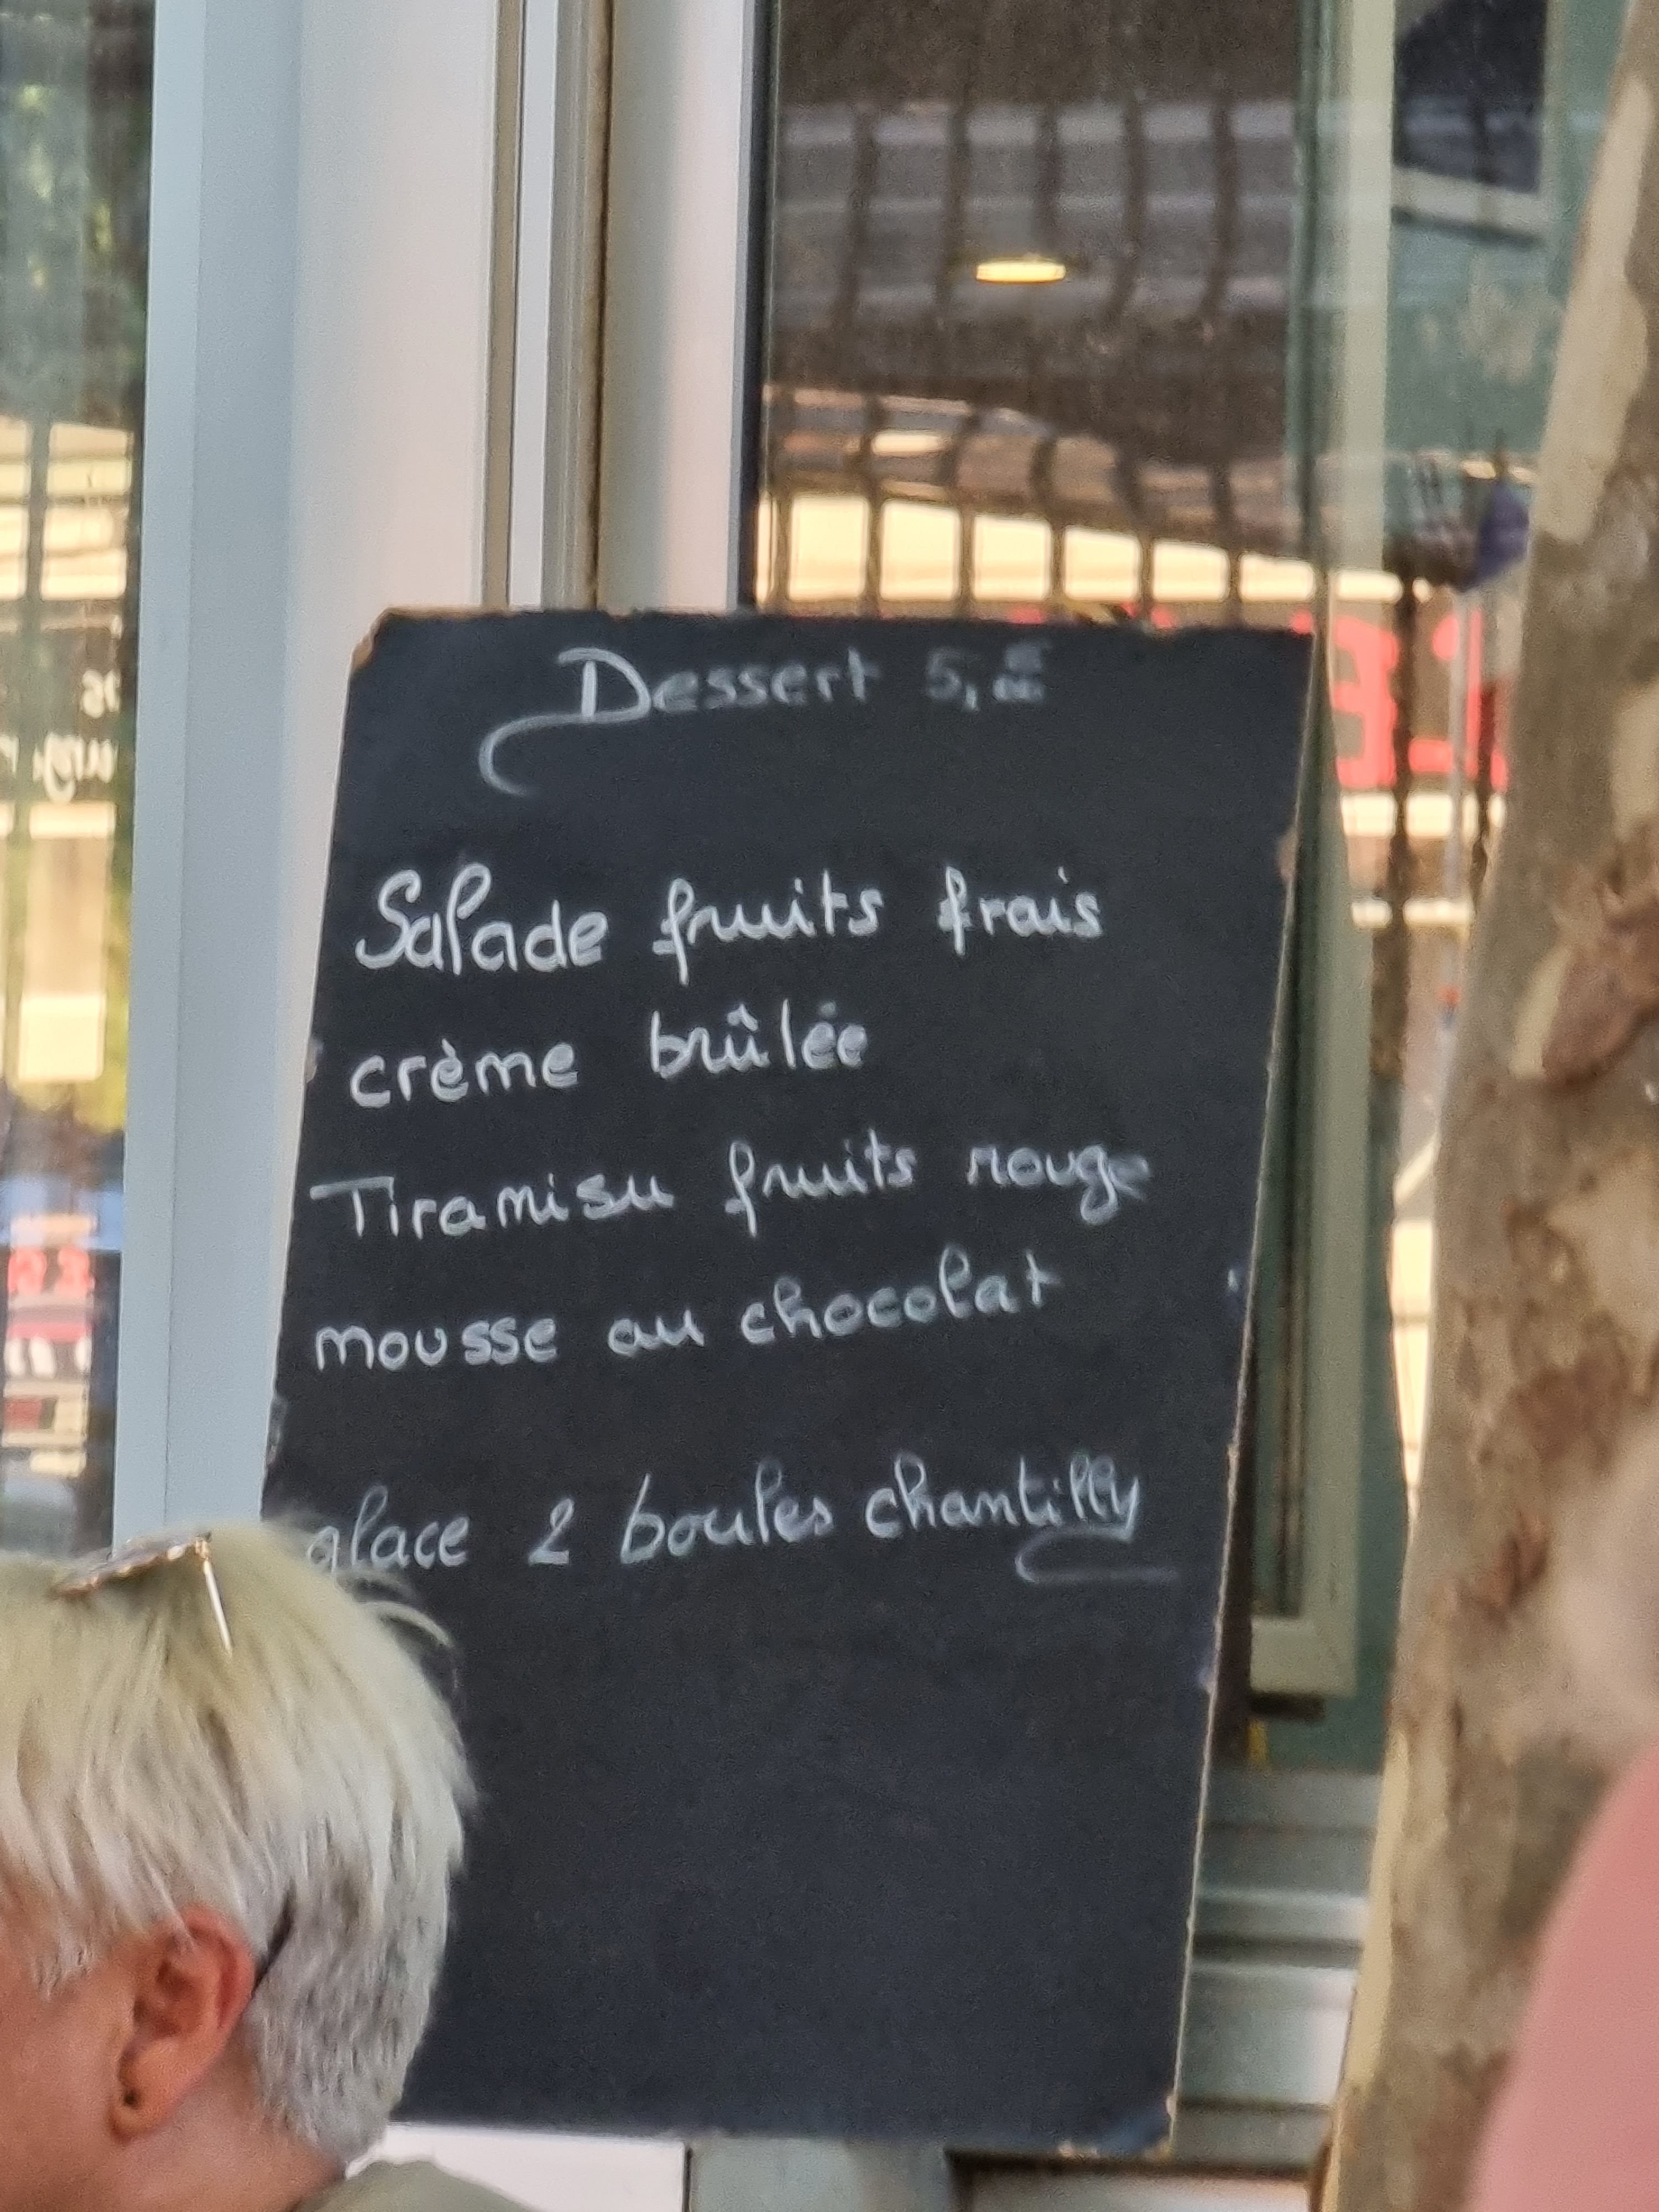 Dessert 5,€
Salade fruits frais
crème brûlée
Tiramisu fruits rouge
mousse au chocolat
glace 2 boules chantilly